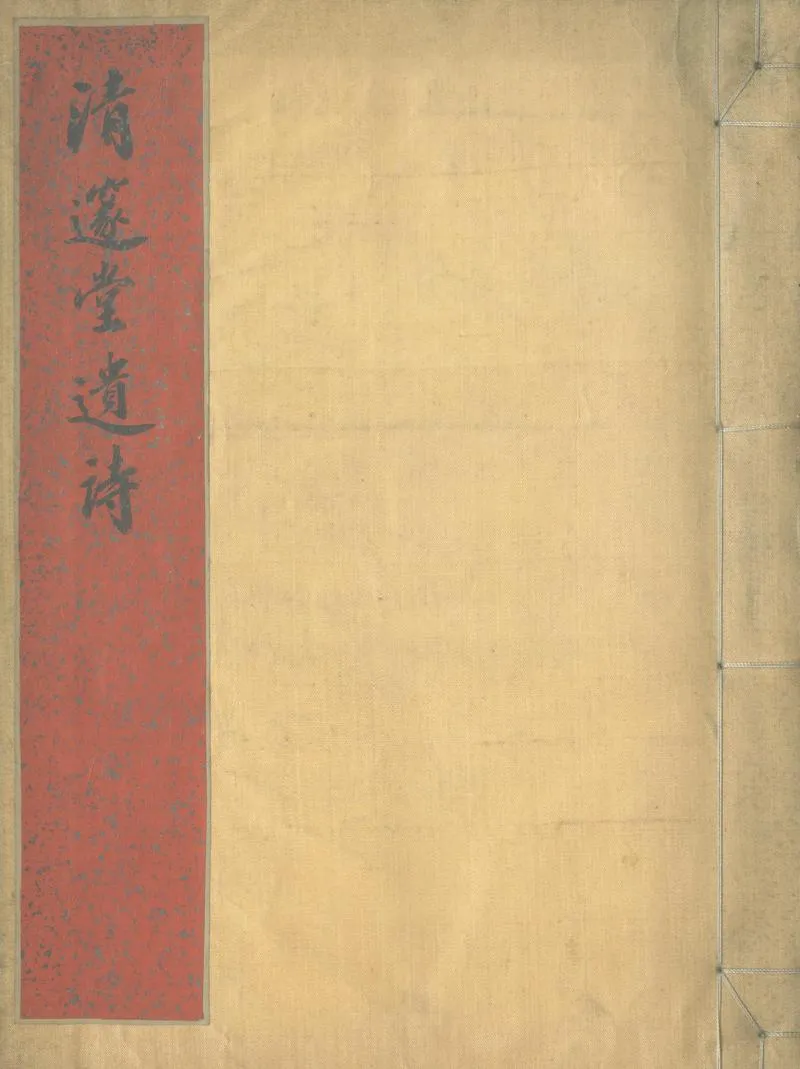 清邃堂遺詩